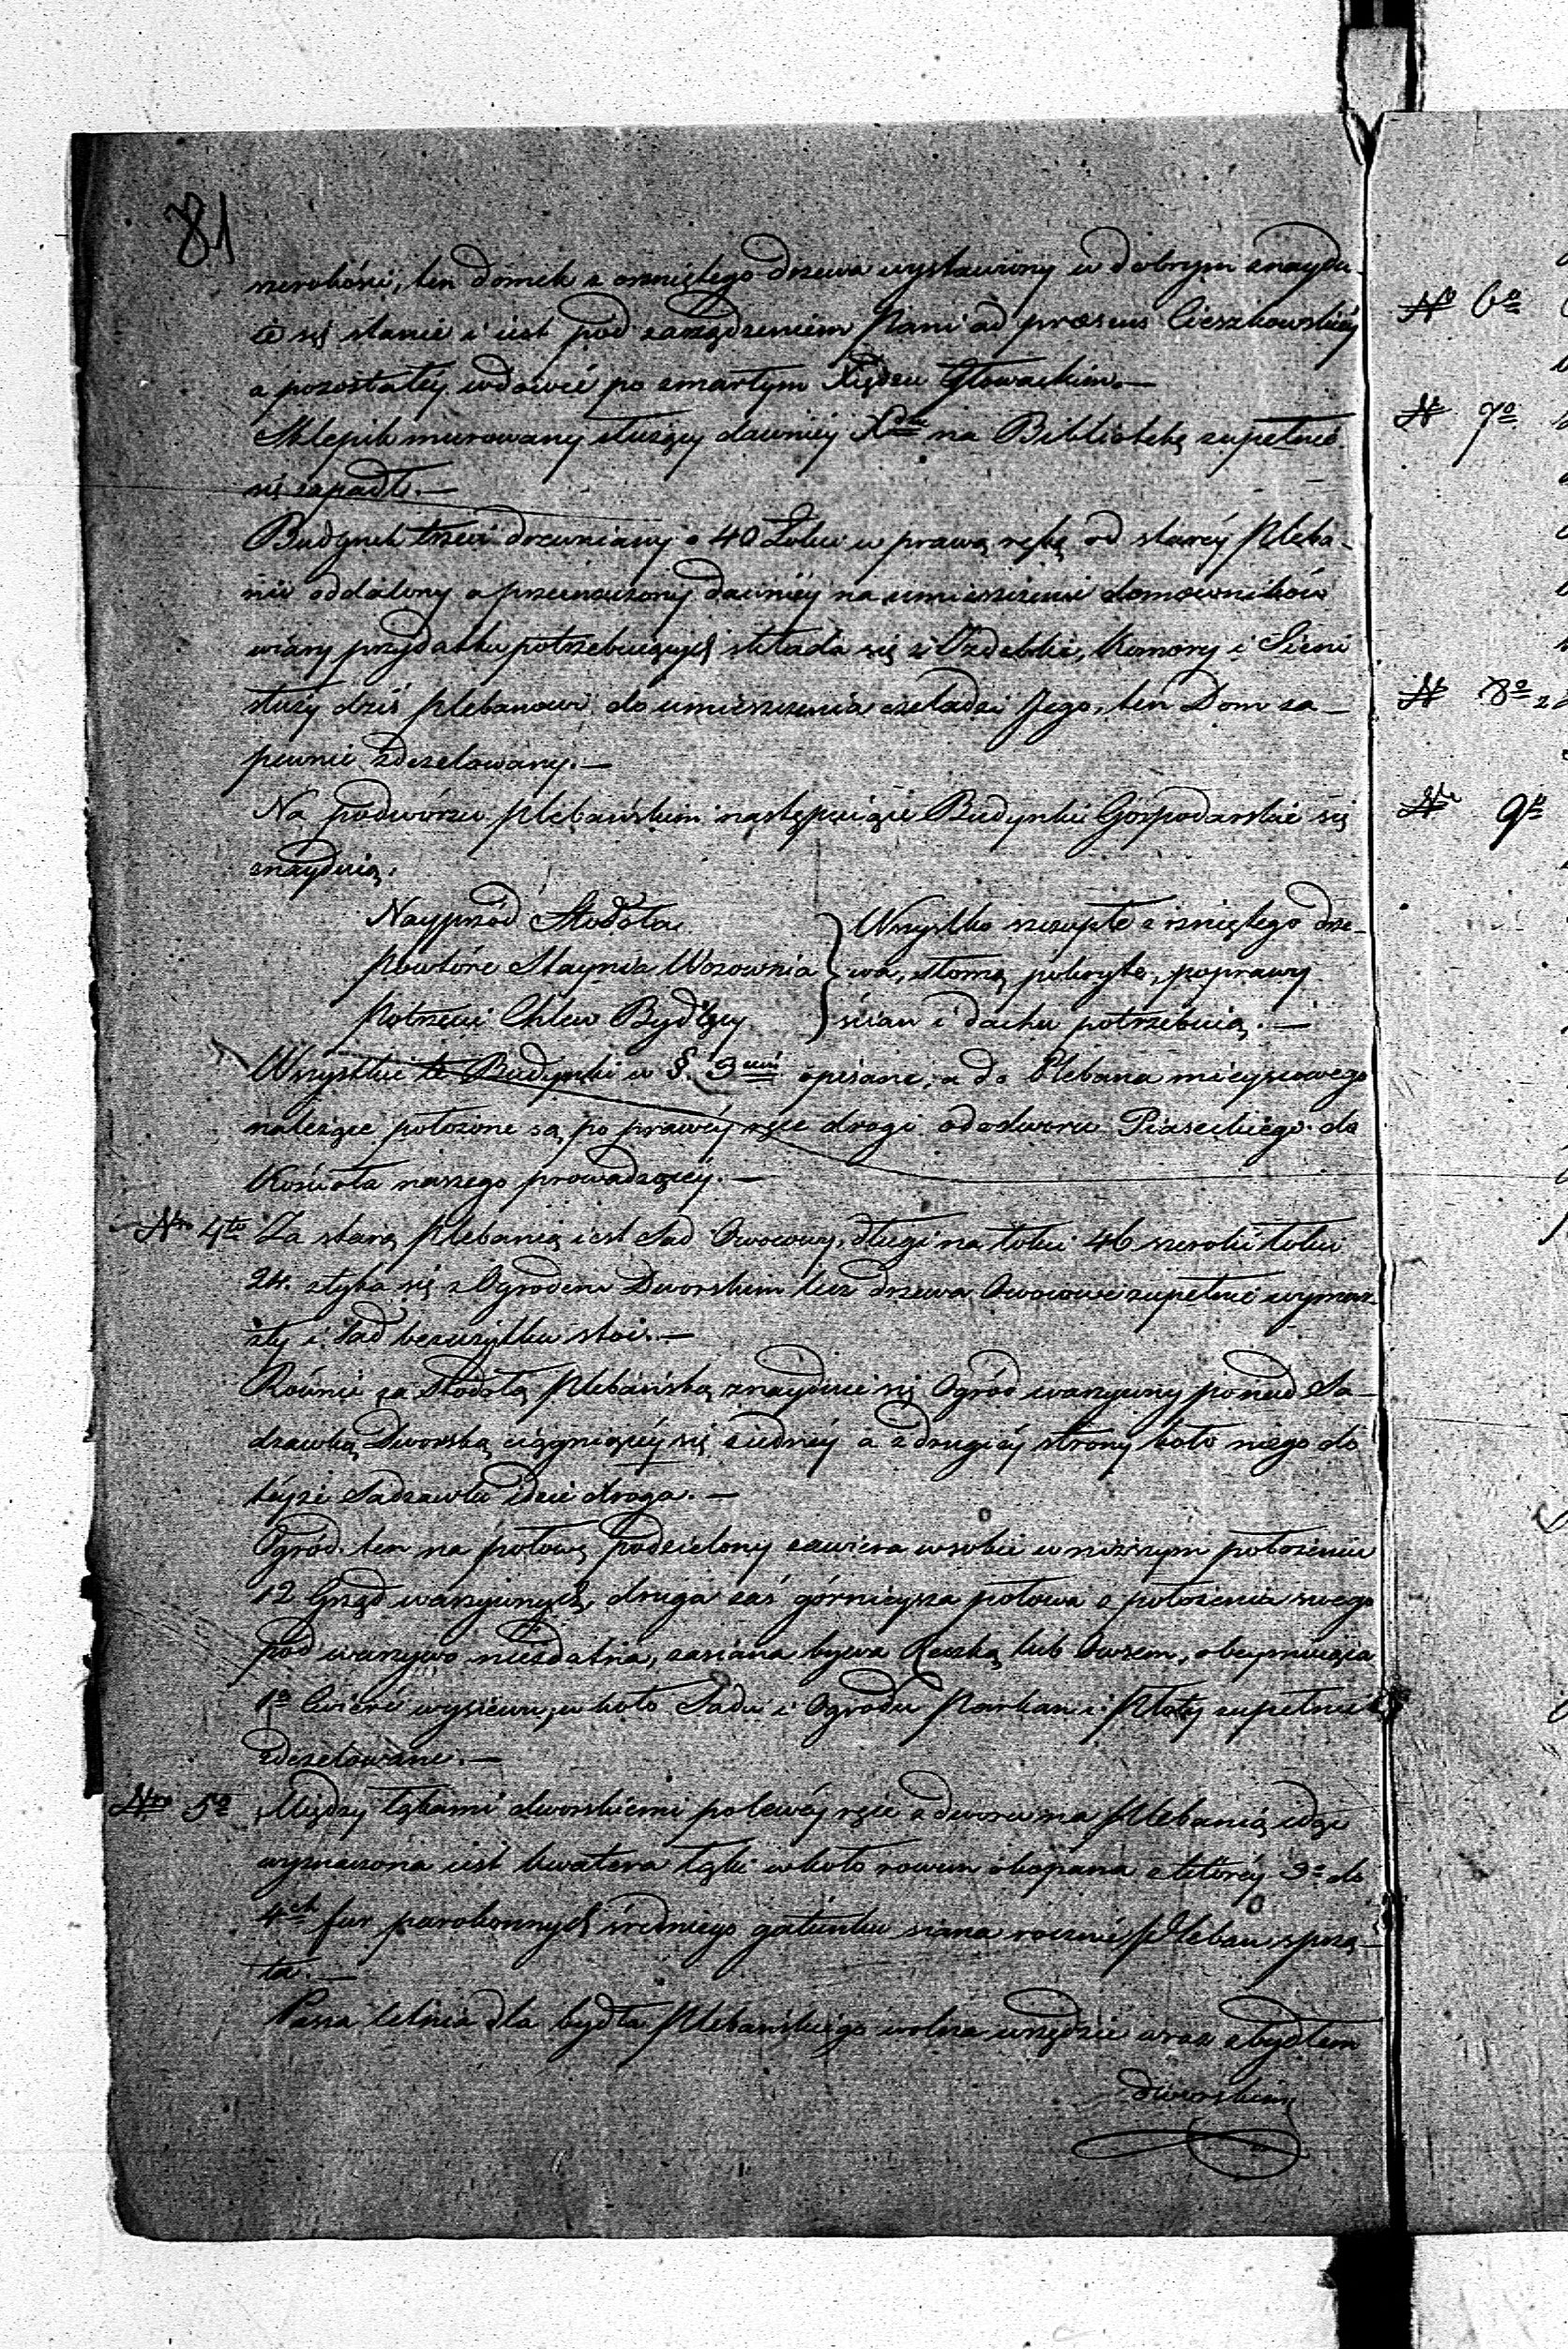 81
szerokości, ten domek z orzniętego drzewa wystawiony w dobrym znaydu-
ie się stanie i iest pod zarządzeniem Pani ad praesens Cieszkowskiéy
a pozostałéy wdowie po zmarłym Xiędzu Głowackim.—
Sklepik murowany służący dawniéy Xdzu na Bibliotekę zupełnie
się zapadł.—
Budynek trzeci drewniany o 40 Łokci w prawą rękę od staréy Pleba-
nii oddalony a przeznaczony dawniéy na umieszczenie domowników
wiary przydatku potrzebuiących składa się z Izdebki, Komory i Sieni
służy dziś Plebanowi do umieszczenia czeladzi Jego, ten Dom zu-
pełnie zdezelowany.—
Na podwórzu Plebańskim następuiące Budynki Gospodarskie się
znayduią.
Nayprzód Stodoła
Powtóre Staynia Wozownia
Potrzecie Chlew Bydlęcy
Wszystko szczupłe z rzniętego drze-
wa, słomą pokryte, poprawy
ścian i dachu potrzebuią.—
Wszystkie te Budynki w § 3cim opisane, a do Plebana mieyscowego
należące położone są po prawéy ręce drogi od dworu Piaseckiego do
Kościoła naszego prowadzącéy.—
Nro 4to Za starą Plebanią iest Sad Owocowy, długi na łokci 46 szeroki łokci
24. styka się z Ogrodem Dworskim lecz drzewa Owocowe zupełnie wymar-
zły i Sad bezużytku stoi.—
Równie za Stodołą Plebańską znayduie się Ogród warzywny ponad Sa-
dzawką Dworską ciągnącéy się z iednéy a z drugiéy strony koło niego do
téyże Sadzawki idzie droga.—
Ogród ten na połowę podzielony zawiera w sobie w niższym położeniu
12 Grząd warzywnych, druga zaś górnieysza połowa z położenia swego
pod warzywo niezdatna, zasiana bywa Reczką lub Owsem, obeymuiąca
1ą Cwierć wysiewu, w koło Sadu i Ogrodu Parkan i Płoty zupełnie
zdezelowane.—
Nro 5o Między łąkami dworskiemi po lewéy ręce z dworu na Plebanią idąc
wyznaczona iest kwatera łąki wkoło rowem okopana z któréy 3 do
4ch fur parokonnych średniego gatunku siana rocznie Pleban sprzą-
ta.—
Pasza letnia dla bydła Plebańskiego wolna wszędzie wraz z bydłem
dworskiem
No 6o
N 7o
N 8o
Nr 9o